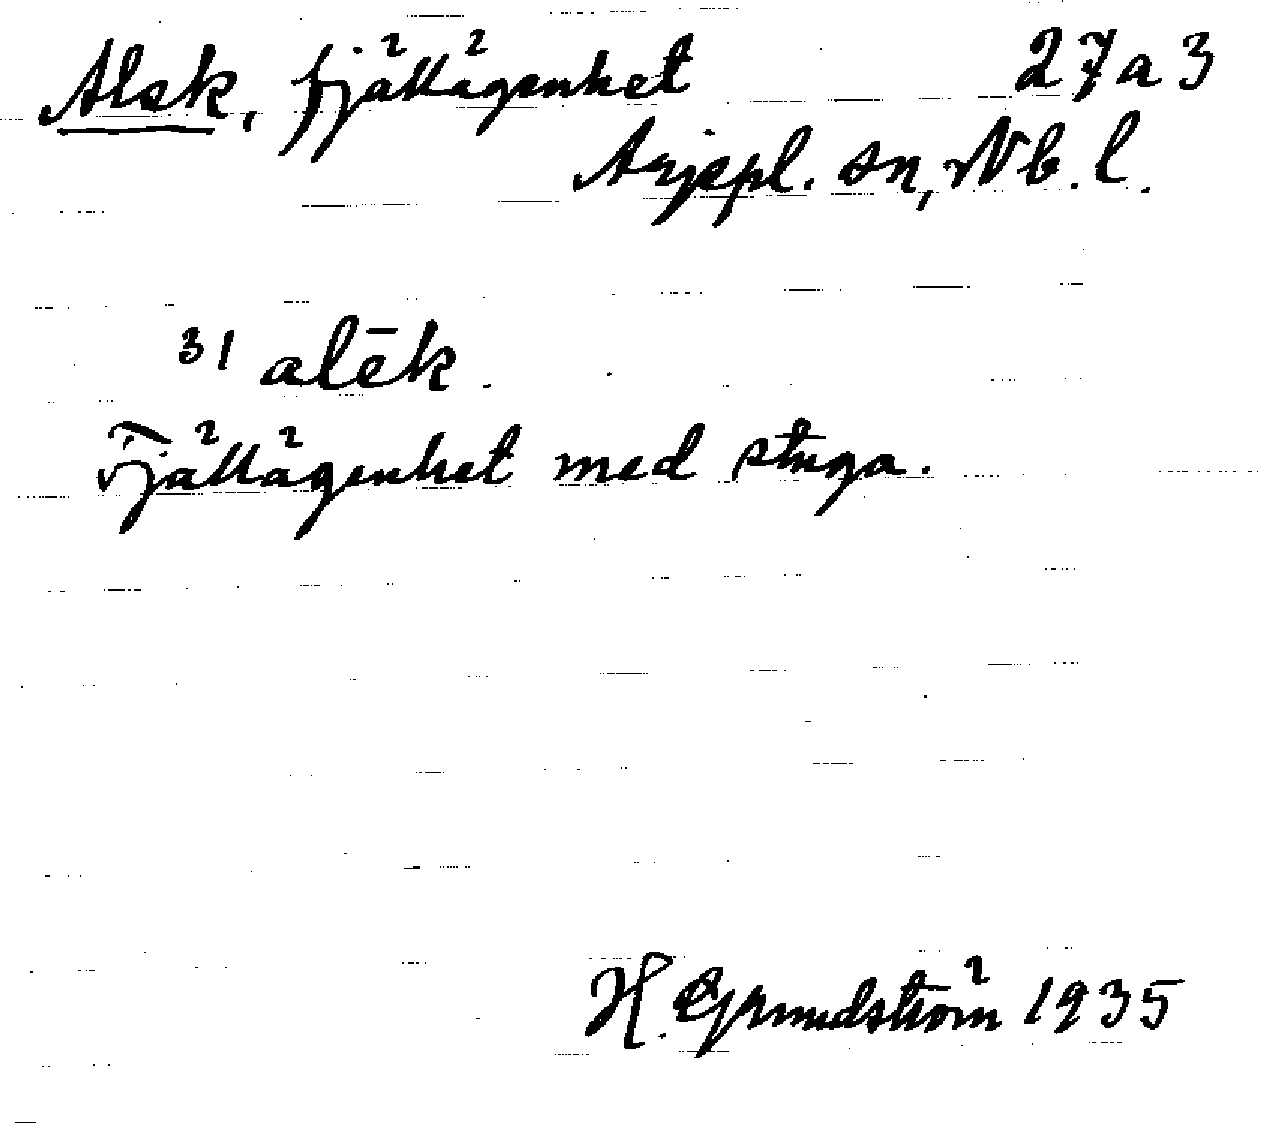 Alek, fjällägenhet 27 a 3
Arjepl. sn, Nb. l.
31 alēk.
Fjällägenhet med stuga.
H. Grundström 1935